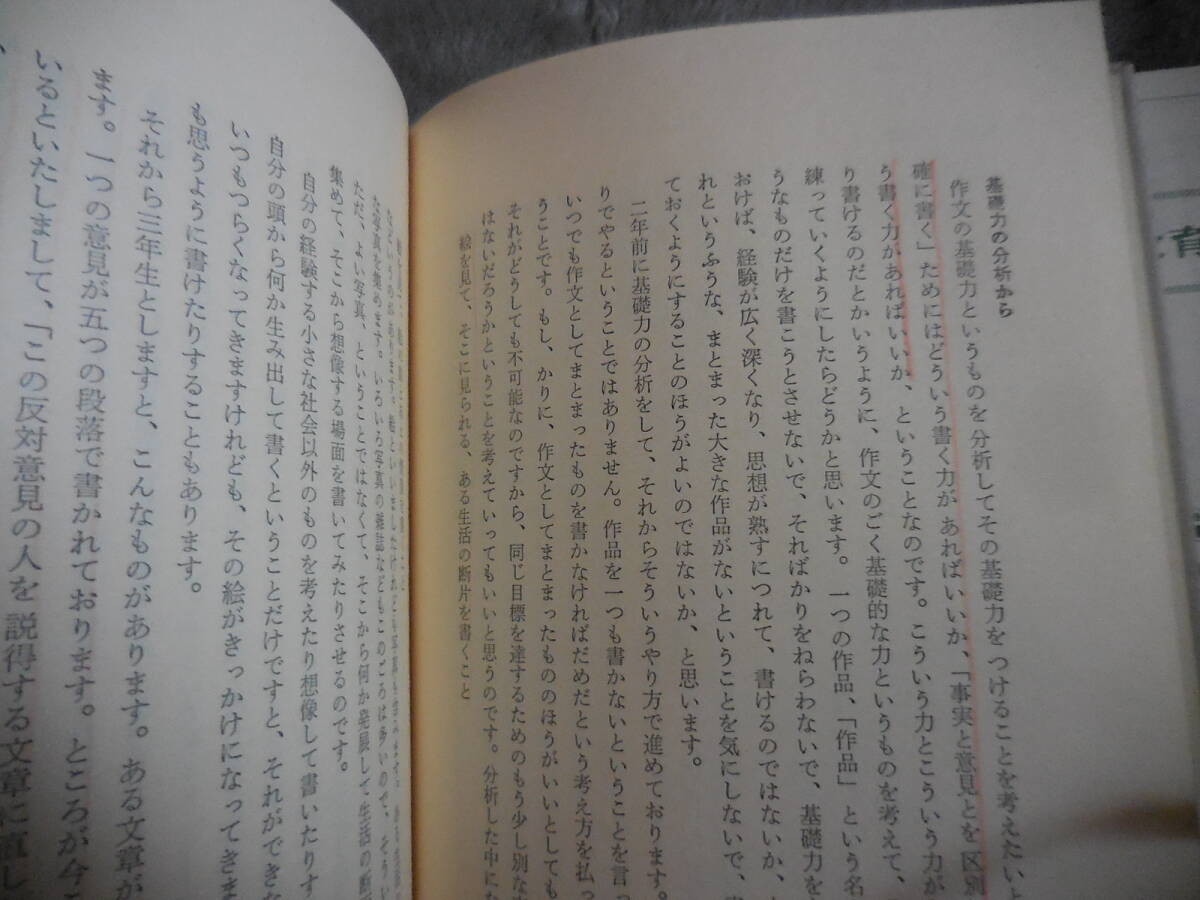 基礎力の分析から
作文の基礎力というものを分析してその基礎力をつけることを考えたいと
確に書く」ためにはどういう書く力があればいいか、「事実と意見とを区別
う書く力があればいいか、ということなのです。こういう力とこういう力が
り書けるのだとかいうように、作文のごく基礎的な力というものを考えて、
練っていくようにしたらどうかと思います。一つの作品、「作品」という名
うなものだけを書こうとさせないで、そればかりをねらわないで、基礎力を
おけば、経験が広く深くなり、思想が熟すにつれて、書けるのではないか、
れというふうな、まとまった大きな作品がないということを気にしないで、
ておくようにすることのほうがよいのではないか、と思います。
二年前に基礎力の分析をして、それからそういうやり方で進めております。
りでやるということではありません。作品を一つも書かないということを言っ
いつでも作文としてまとまったものを書かなければだめだという考え方を払っ
うことです。もし、かりに、作文としてまとまったもののほうがいいとしても
それがどうしても不可能なのですから、同じ目標を達するためのもう少し別な
はないだろうかということを考えていってもいいと思うのです。分析した中にな
絵を見て、そこに見られる、ある生活の断片を書くこと
た写真を集めます。いろいろ写真の雑誌などもこのごろは多いので、そうい
ただ、よい写真、ということではなくて、そこから何か発展して生活の断
集めて、そこから想像する場面を書いてみたりさせるのです。
自分の経験する小さな社会以外のものを考えたり想像して書いたりす
自分の頭から何か生み出して書くということだけですと、それができな
いつもつらくなってきますけれども、その絵がきっかけになってきま
も思うように書けたりすることもあります。
それから三年生としますと、こんなものがあります。ある文章が
ます。一つの意見が五つの段落で書かれております。ところが今
いるといたしまして、「この反対意見の人を説得する文章に直し
育